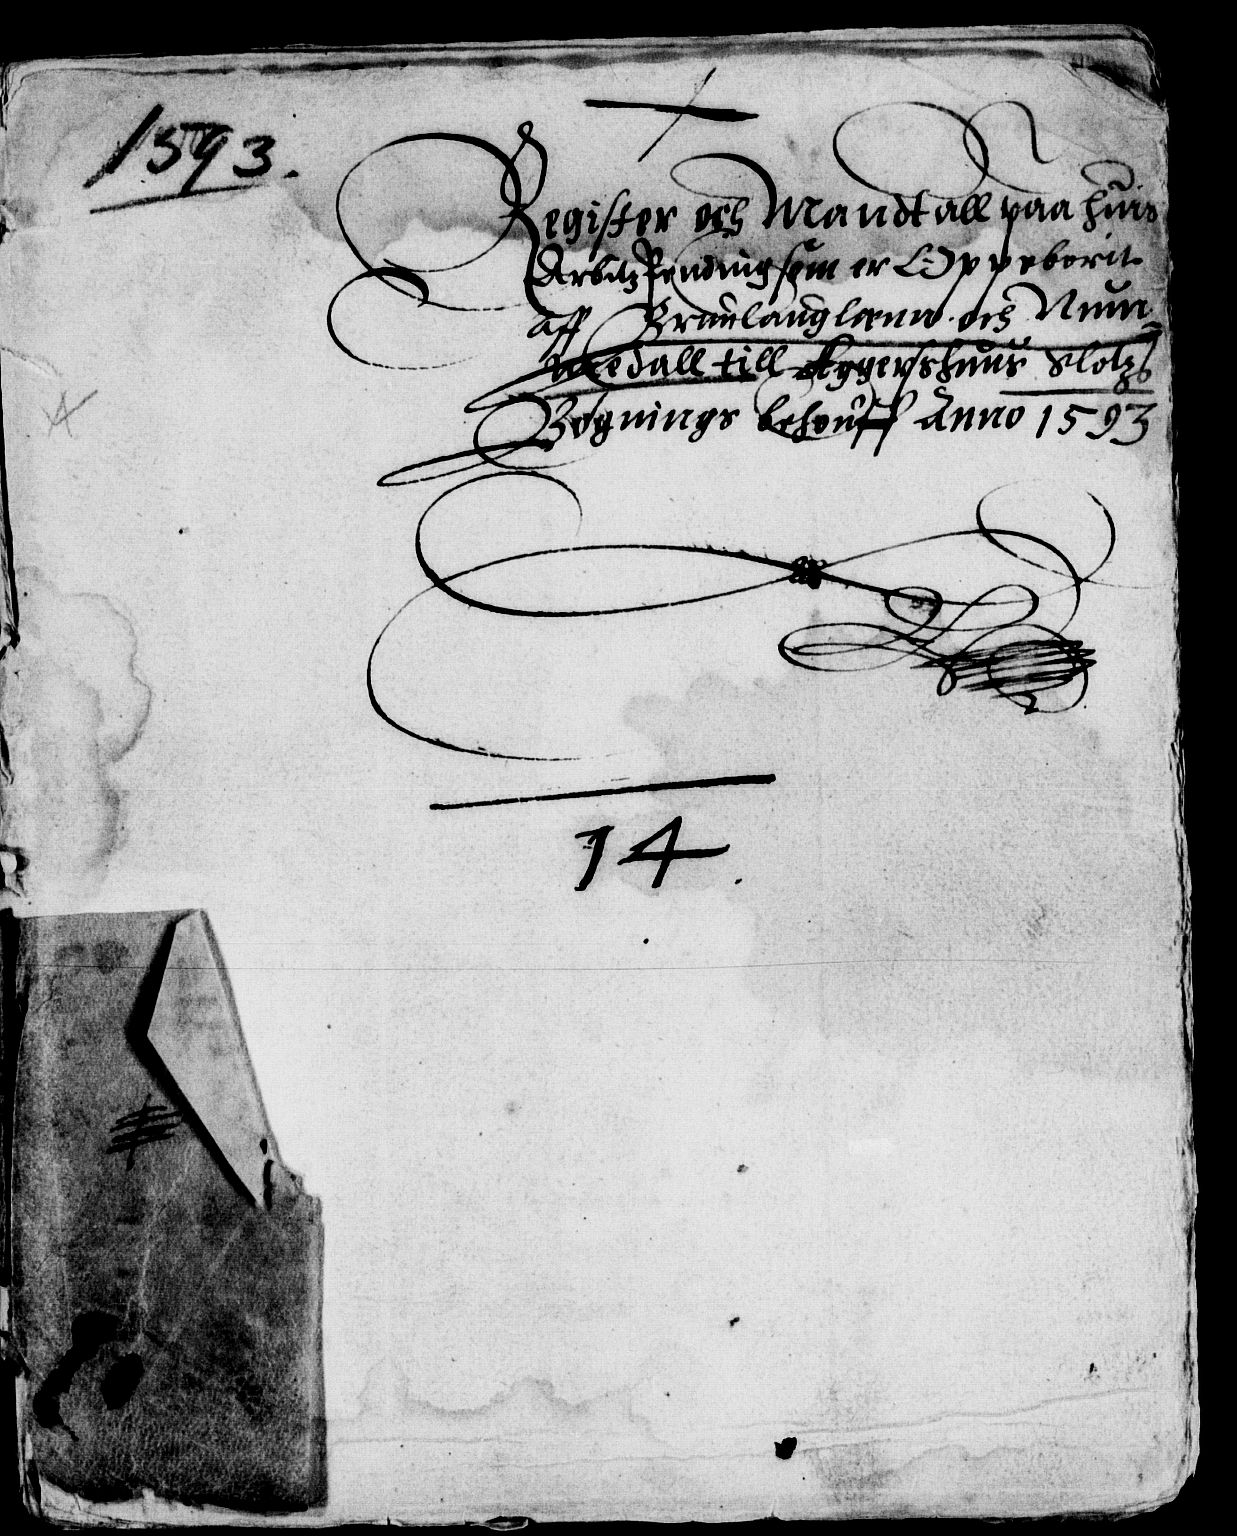 1593.
Register och Mandtall paa huis
Arbitz Pending som er Oppeborit
aff Brunlaugh lænn och Num-
medall till Aggershuus Slotzs
Bygnings behouff Anno 1593
14.